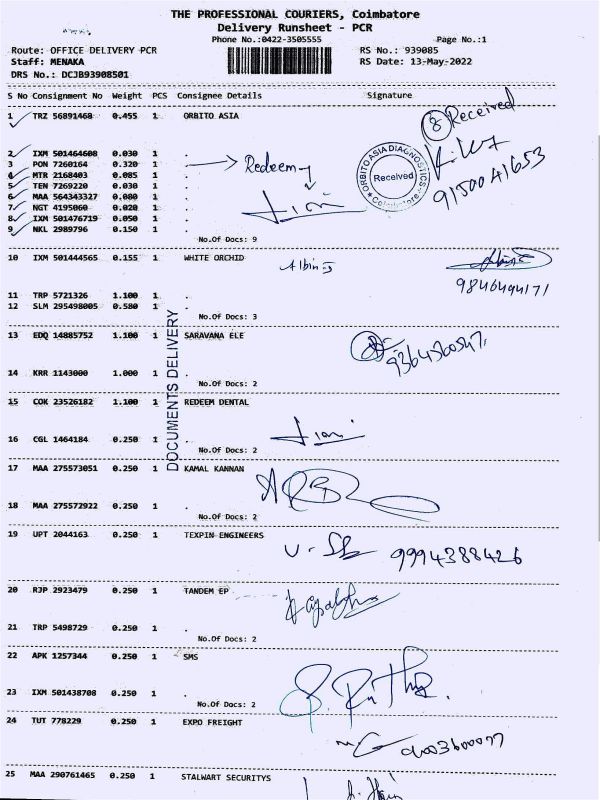 THE PROFESSIONAL COURIERS, Coimbatore
Delivery Runsheet - PCR
Phone No.:0422-3505555 Page No.:1
Route: OFFICE DELIVERY PCR RS No.: 939085
Staff: MENAKA RS Date: 13-May-2022
DRS No.: DCJB93908501
S No Consignment No Weight PCS Consignee Details Signature
1 TRZ 56891468 0.455 1 ORBITO ASIA
8 Received
2 IXM 501464608 0.030 1 .
3 PON 7260164 0.320 1 . Redeem
4 MTR 2168403 0.085 1 .
5 TEN 7269220 0.030 1 .
6 MAA 564343327 0.080 1 .
7 NGT 4195060 0.020 1 .
8 IXM 501476719 0.050 1 .
9 NKL 2989796 0.150 1 .
ORBITO ASIA DIAGNOSTICS
Received
Coimbatore
9150041653
No.Of Docs: 9
10 IXM 501444565 0.155 1 WHITE ORCHID
9846494171
11 TRP 5721326 1.100 1 .
12 SLM 295498005 0.580 1 .
No.Of Docs: 3
DOCUMENTS DELIVERY
13 EDQ 14885752 1.100 1 SARAVANA ELE
14 KRR 1143000 1.000 1 .
No.Of Docs: 2
15 COK 23526182 1.100 1 REDEEM DENTAL
16 CGL 1464184 0.250 1 .
No.Of Docs: 2
17 MAA 275573051 0.250 1 KAMAL KANNAN
18 MAA 275572922 0.250 1 .
No.Of Docs: 2
19 UPT 2044163 0.250 1 TEXPIN ENGINEERS
9994388426
20 RJP 2923479 0.250 1 TANDEM EP
21 TRP 5498729 0.250 1 .
No.Of Docs: 2
22 APK 1257344 0.250 1 SMS
23 IXM 501438708 0.250 1 .
No.Of Docs: 2
24 TUT 778229 0.250 1 EXPO FREIGHT
25 MAA 290761465 0.250 1 STALWART SECURITYS